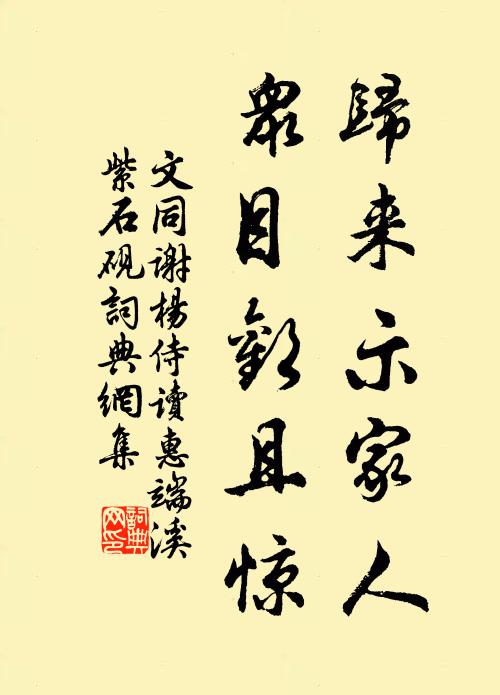 歸来示家人
眾目歡且惊
文同謝楊侍讀惠端溪
紫石硯詞典網集
詞典
网印